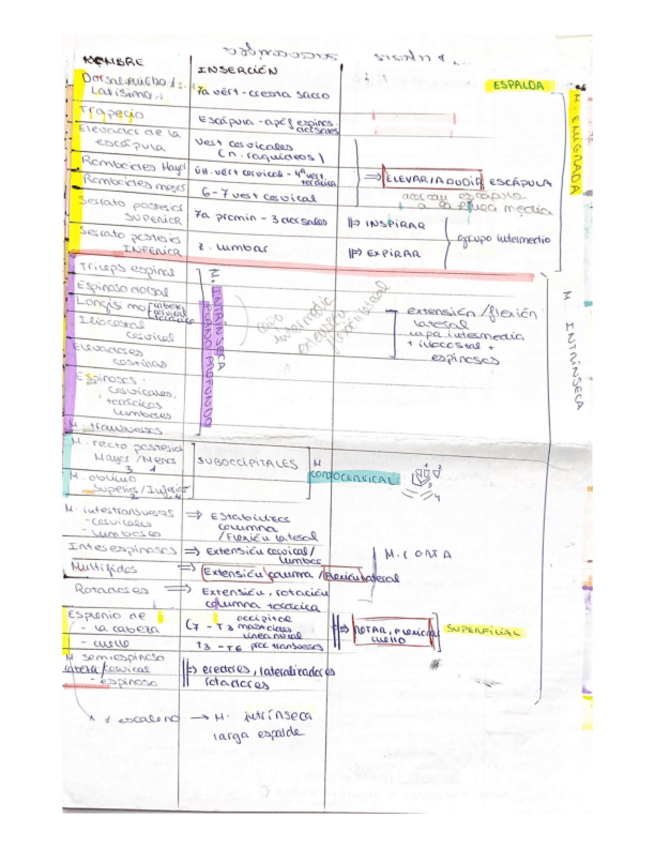 NOMBRE
INSERCIÓN
ESPALDA
M. EMIGRADA
Dorsal ancho
Latísimo
7a vért - cresta sacro
Trapecio
Escápula - apóf espinos.
dorsales
Elevador de la
escápula
Vert cervicales
(n. raquídeos)
Romboides Mayor
últ. vért cervical - 4ª vert.
torácica
Romboides menor
6-7 vert cervical
⇒ ELEVAR/ADUCIR ESCÁPULA
a la línea media
Serrato posterior
SUPERIOR
7a promin - 3 dorsales
⇒ INSPIRAR
Serrato posterior
INFERIOR
2. lumbar
⇒ EXPIRAR
grupo intermedio
M. INTRÍNSECA
Triceps espinal
Espinoso dorsal
Longísimo
cabeza
cervical
torácico
Iliocostal
cervical
M. INTRÍNSECA
PLANO PROFUNDO
capa
intermedia
extensión/flexión
lateral
- capa intermedia
+ iliocostal +
espinosos
Elevadores
costillas
Espinosos:
cervicales,
torácicos
lumbares
M. transversos
M. recto posterior
Mayor/Menor
3 1
M. oblicuo
Superior/Inferior
2 4
SUBOCCIPITALES
M
CORTOCERVICAL
1 2
3
4
M. intertransversos
- cervicales
- lumbares
⇒ Estabilizar
columna
/Flexión lateral
Interespinosos
⇒ Extensión cervical/
lumbar
M. CORTA
Multífidos
⇒ Extensión columna/Flexión lateral
Rotadores
⇒ Extensión, rotación
columna torácica
Esplenio de
- la cabeza
- cuello
C7 - T3
occipital
mastoides
línea nucal
T3 - T6 proc transversos
⇒ ROTAR, flexionar
cuello
SUPERFICIAL
M semiespinoso
cabeza/cervical
- espinoso
⇒ erectores, lateralizadores
rotadores
* escaleno → M. intrínseca
larga espalda